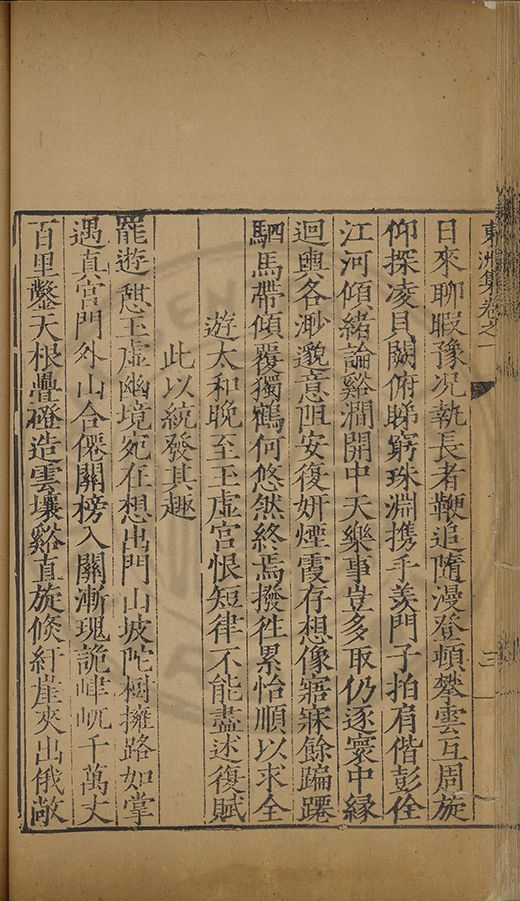 東洲集卷之一
三
日來聊暇豫况執長者鞭追隨漫登頓攀雲互周旋
仰探凌貝闕俯睇窮珠淵携手羨門子拍肩偕彭佺
江河傾緒論谿澗開中天樂事豈多取仍逐寰中緣
迴輿各渺邈意阻安復妍煙霞存想像寤寐餘蹁躚
駟馬帶傾覆獨鶴何悠然終焉撥往累怡順以求全
遊太和晚至玉虛宮恨短律不能盡述復賦
此以統發其趣
罷遊憇玉虛幽境宛在想出門山坡陀樹擁路如掌
遇真宮門外山合僊關榜入關漸瑰詭嵂屼千萬丈
百里鑿天根疊磴造雲壤谿直旋倐紆崖夾出俄敞